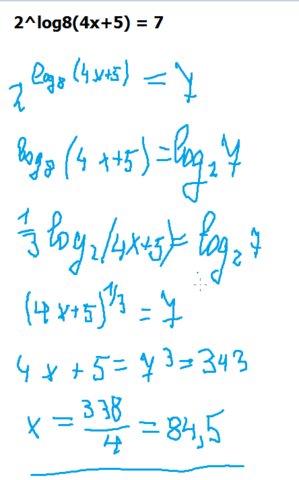 2^log8(4x+5) = 7
2^log₈(4x+5) = 7
log₈(4x+5)=log₂7
1/3 log₂(4x+5)=log₂7
(4x+5)^1/3 = 7
4x+5=7³=343
x = 338/4 = 84,5